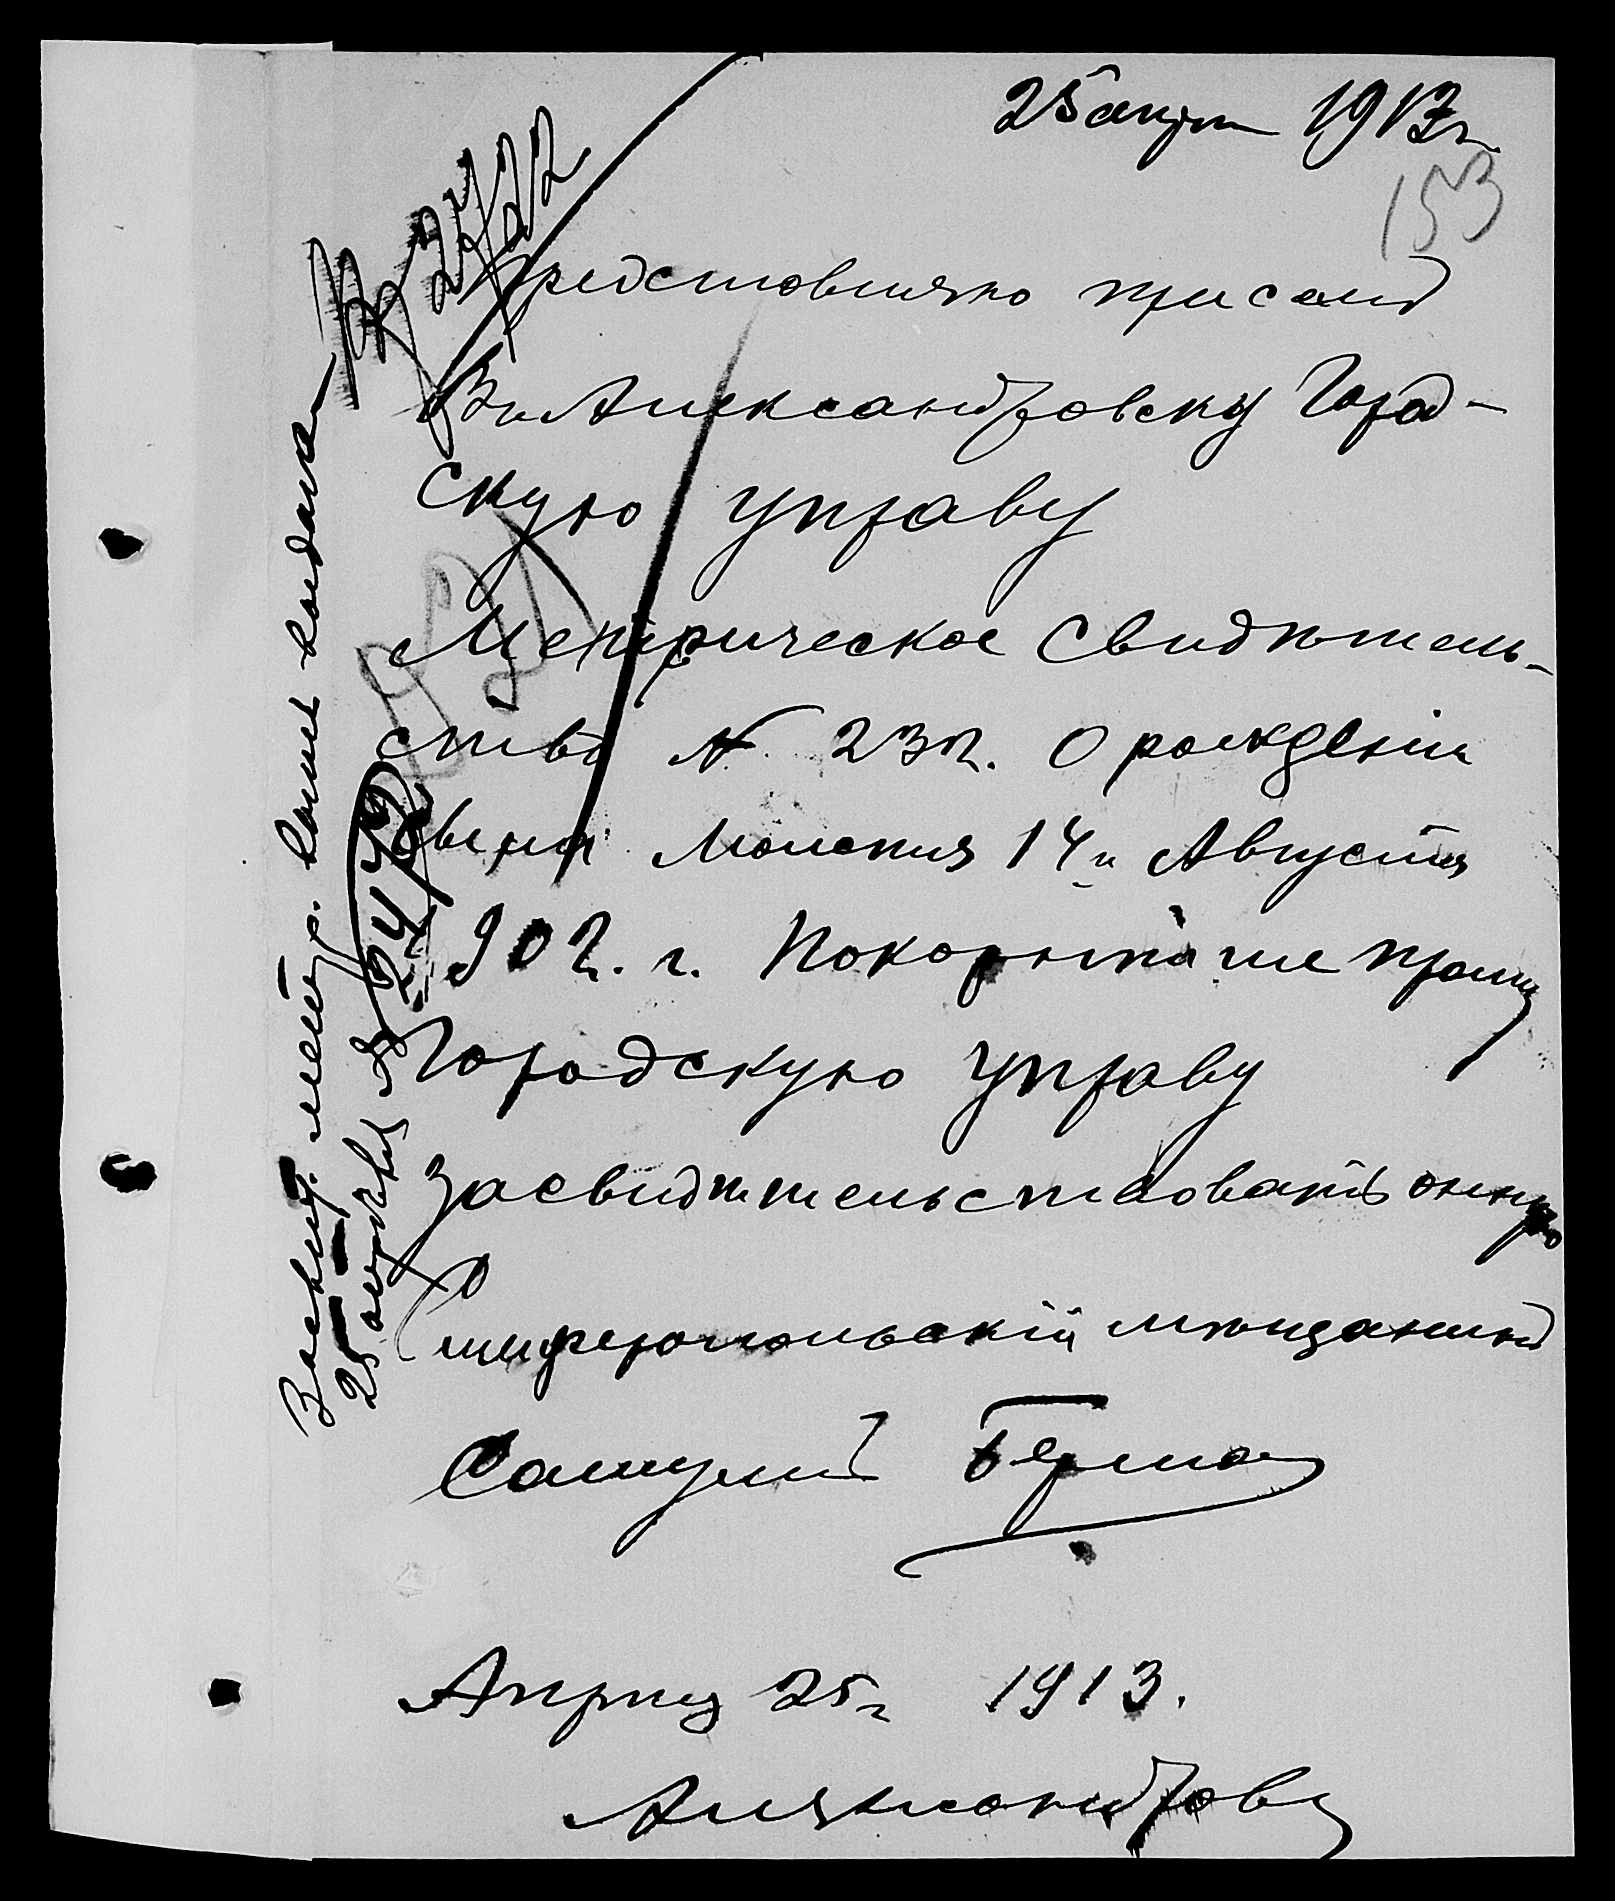 25 апр 1913 г.
153
Представляя при семъ
Въ Александровску Город-
скую управу
Метрическое свидѣтель-
ство № 232. О рожденіи
сына Моисея 14го Августа
1902. г. Покорнѣйше прошу
Городскую управу
засвидѣтельствовать онную
Симферопольскій мѣщанинъ
Самуилъ Берман
Апрѣля 25го 1913.
Александровск
Засвид. метр. копія выдана
25 апрѣля